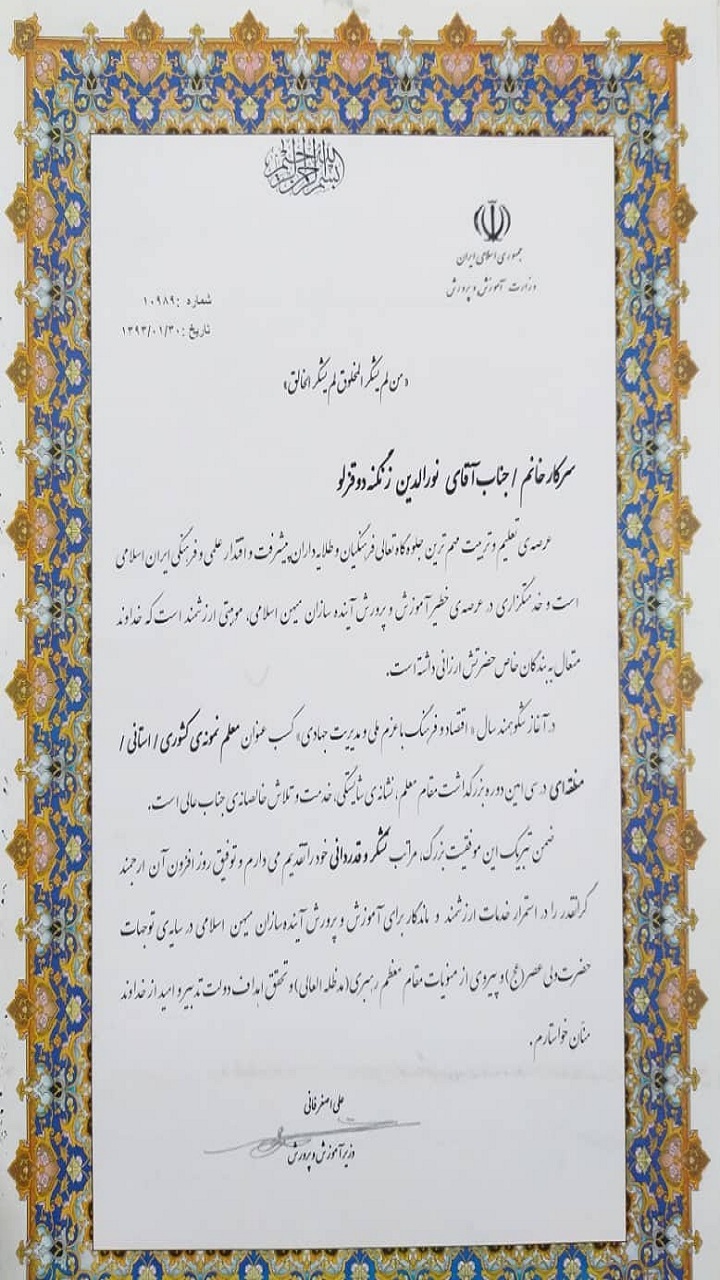 بسم الله الرحمن الرحیم
جمهوری اسلامی ایران
وزارت آموزش و پرورش
شماره : ۱۰۹۸۹
تاریخ : ۱۳۹۳/۰۱/۳۰
«من لم یشکر المخلوق لم یشکر الخالق»
سرکار خانم / جناب آقای نورالدین زنگنه دوقزلو
عرصه‌ی تعلیم و تربیت مهم ترین جلوه گاه تعالی فرهنگیان و طلایه داران پیشرفت و اقتدار علمی و فرهنگی ایران اسلامی
است و خدمتگزاری در عرصه‌ی خطیر آموزش و پرورش آینده سازان میهن اسلامی، موهبتی ارزشمند است که خداوند
متعال به بندگان خاص حضرتش ارزانی داشته است.
در آغاز شکوهمند سال «اقتصاد و فرهنگ با عزم ملی و مدیریت جهادی» کسب عنوان معلم نمونه‌ی کشوری / استانی /
منطقه‌ای در سی امین دوره بزرگداشت مقام معلم، نشانه‌ی شایستگی، خدمت و تلاش خالصانه‌ی جناب عالی است.
ضمن تبریک این موفقیت بزرگ، مراتب تشکر و قدردانی خود را تقدیم می دارم و توفیق روز افزون آن ارجمند
گرانقدر را در استمرار خدمات ارزشمند و ماندگار برای آموزش و پرورش آینده سازان میهن اسلامی در سایه‌ی توجهات
حضرت ولی عصر(عج) و پیروی از منویات مقام معظم رهبری(مدظله العالی) و تحقق اهداف دولت تدبیر و امید از خداوند
منان خواستارم.
علی اصغر فانی
وزیر آموزش و پرورش